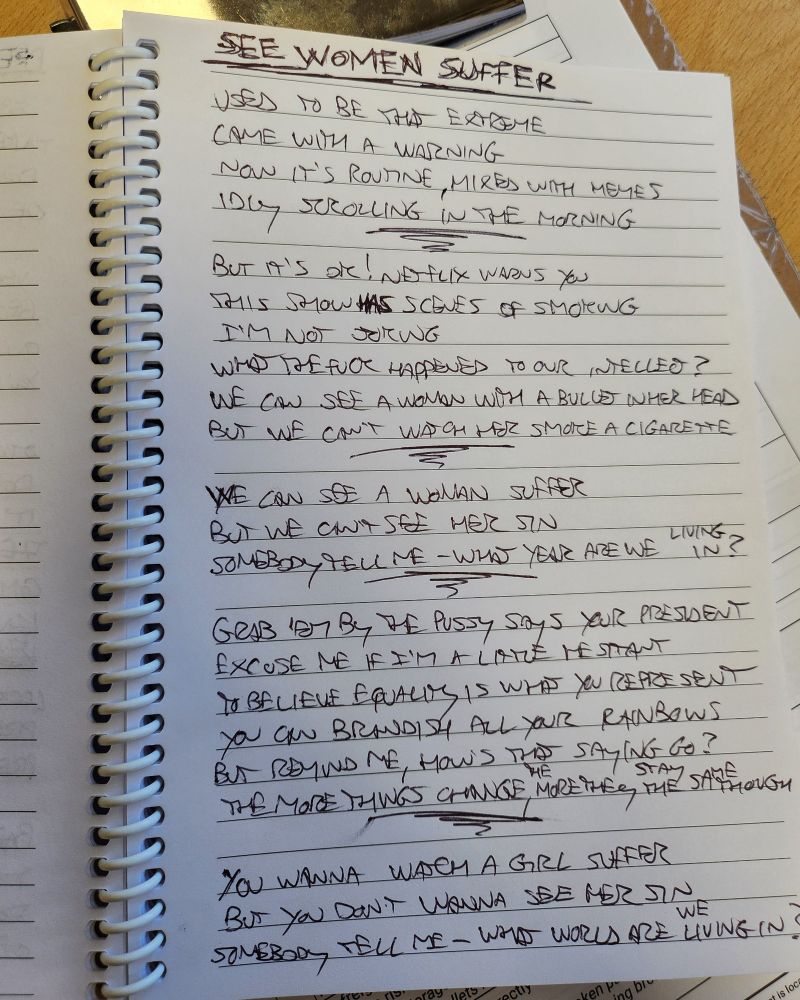 SEE WOMEN SUFFER
USED TO BE THAT EXTREME
CAME WITH A WARNING
NOW IT'S ROUTINE, MIXED WITH MEMES
IDLY SCROLLING IN THE MORNING
BUT IT'S OK! NETFLIX WARNS YOU
THIS SHOW HAS SCENES OF SMOKING
I'M NOT JOKING
WHAT THE FUCK HAPPENED TO OUR INTELLECT?
WE CAN SEE A WOMAN WITH A BULLET IN HER HEAD
BUT WE CAN'T WATCH HER SMOKE A CIGARETTE
WE CAN SEE A WOMAN SUFFER
BUT WE CAN'T SEE HER SIN
SOMEBODY TELL ME - WHAT YEAR ARE WE LIVING IN?
GRAB 'EM BY THE PUSSY SAYS YOUR PRESIDENT
EXCUSE ME IF I'M A LITTLE HESITANT
TO BELIEVE EQUALITY IS WHAT YOU REPRESENT
YOU CAN BRANDISH ALL YOUR RAINBOWS
BUT REMIND ME, HOW'S THAT SAYING GO?
THE MORE THINGS CHANGE, THE MORE THEY STAY THE SAME THOUGH
YOU WANNA WATCH A GIRL SUFFER
BUT YOU DON'T WANNA SEE HER SIN
SOMEBODY TELL ME - WHAT WORLD ARE WE LIVING IN?